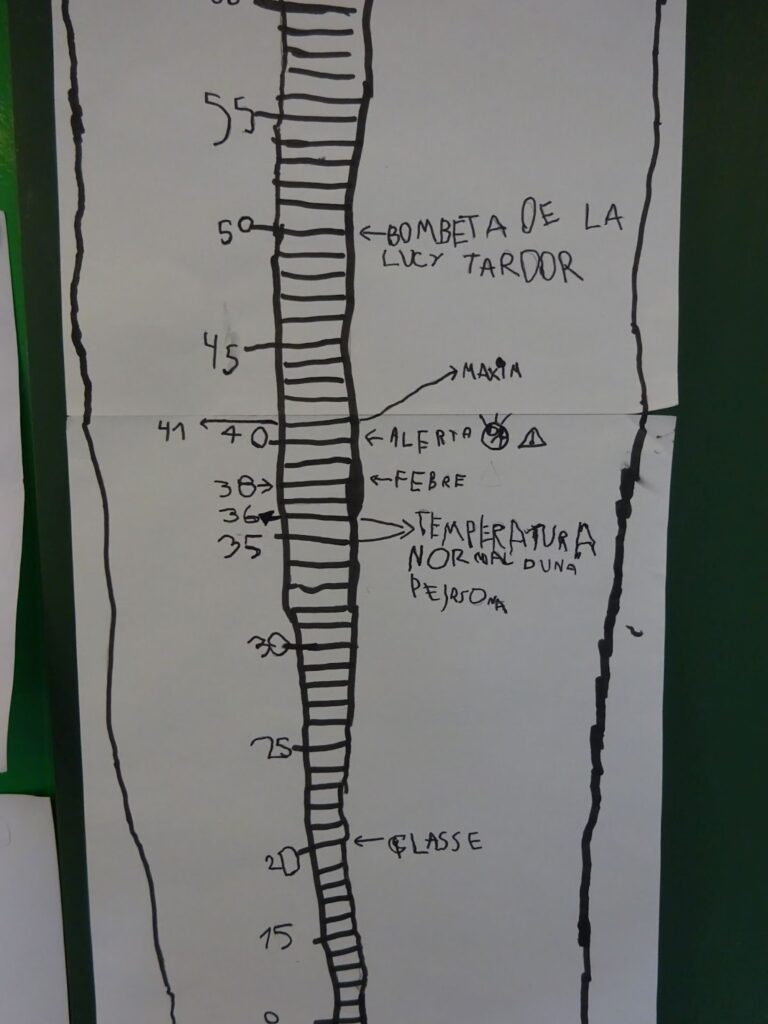 55
50 ←BOMBETA DE LA
LUCY TARDOR
45
MAXIM
41 40 ←ALERTA
38→ ←FEBRE
36
35 TEMPERATURA
NORMAL DUNA
PERSONA
30
25
20 ←CLASSE
15